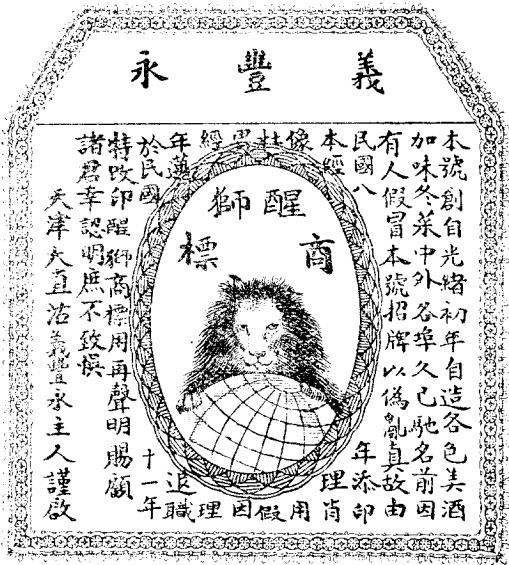 義豐永
醒獅
商標
本號創自光緒初年自造各色美酒
加味冬菜中外各埠久已馳名前因
有人假冒本號招牌以偽亂真故由
民國八年添印
本經理肖
像用
杜假
因
經理
年退職
於民國十一年
特改印醒獅商標用再聲明賜顧
諸君幸認明庶不致悞
天津大直沽義豐永主人謹啟